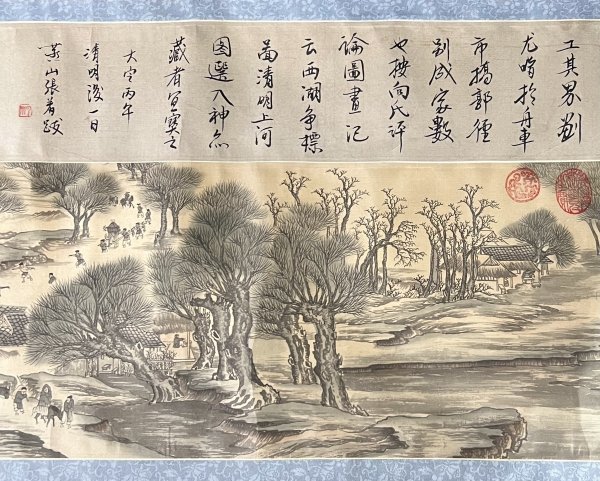 工其界劃
尤嗜於舟車
市橋郭徑
別成家數
也按向氏評
論圖畫記
云西湖爭標
圖清明上河
圖選入神品
藏者宜寶之
大定丙午
清明後一日
燕山張著跋